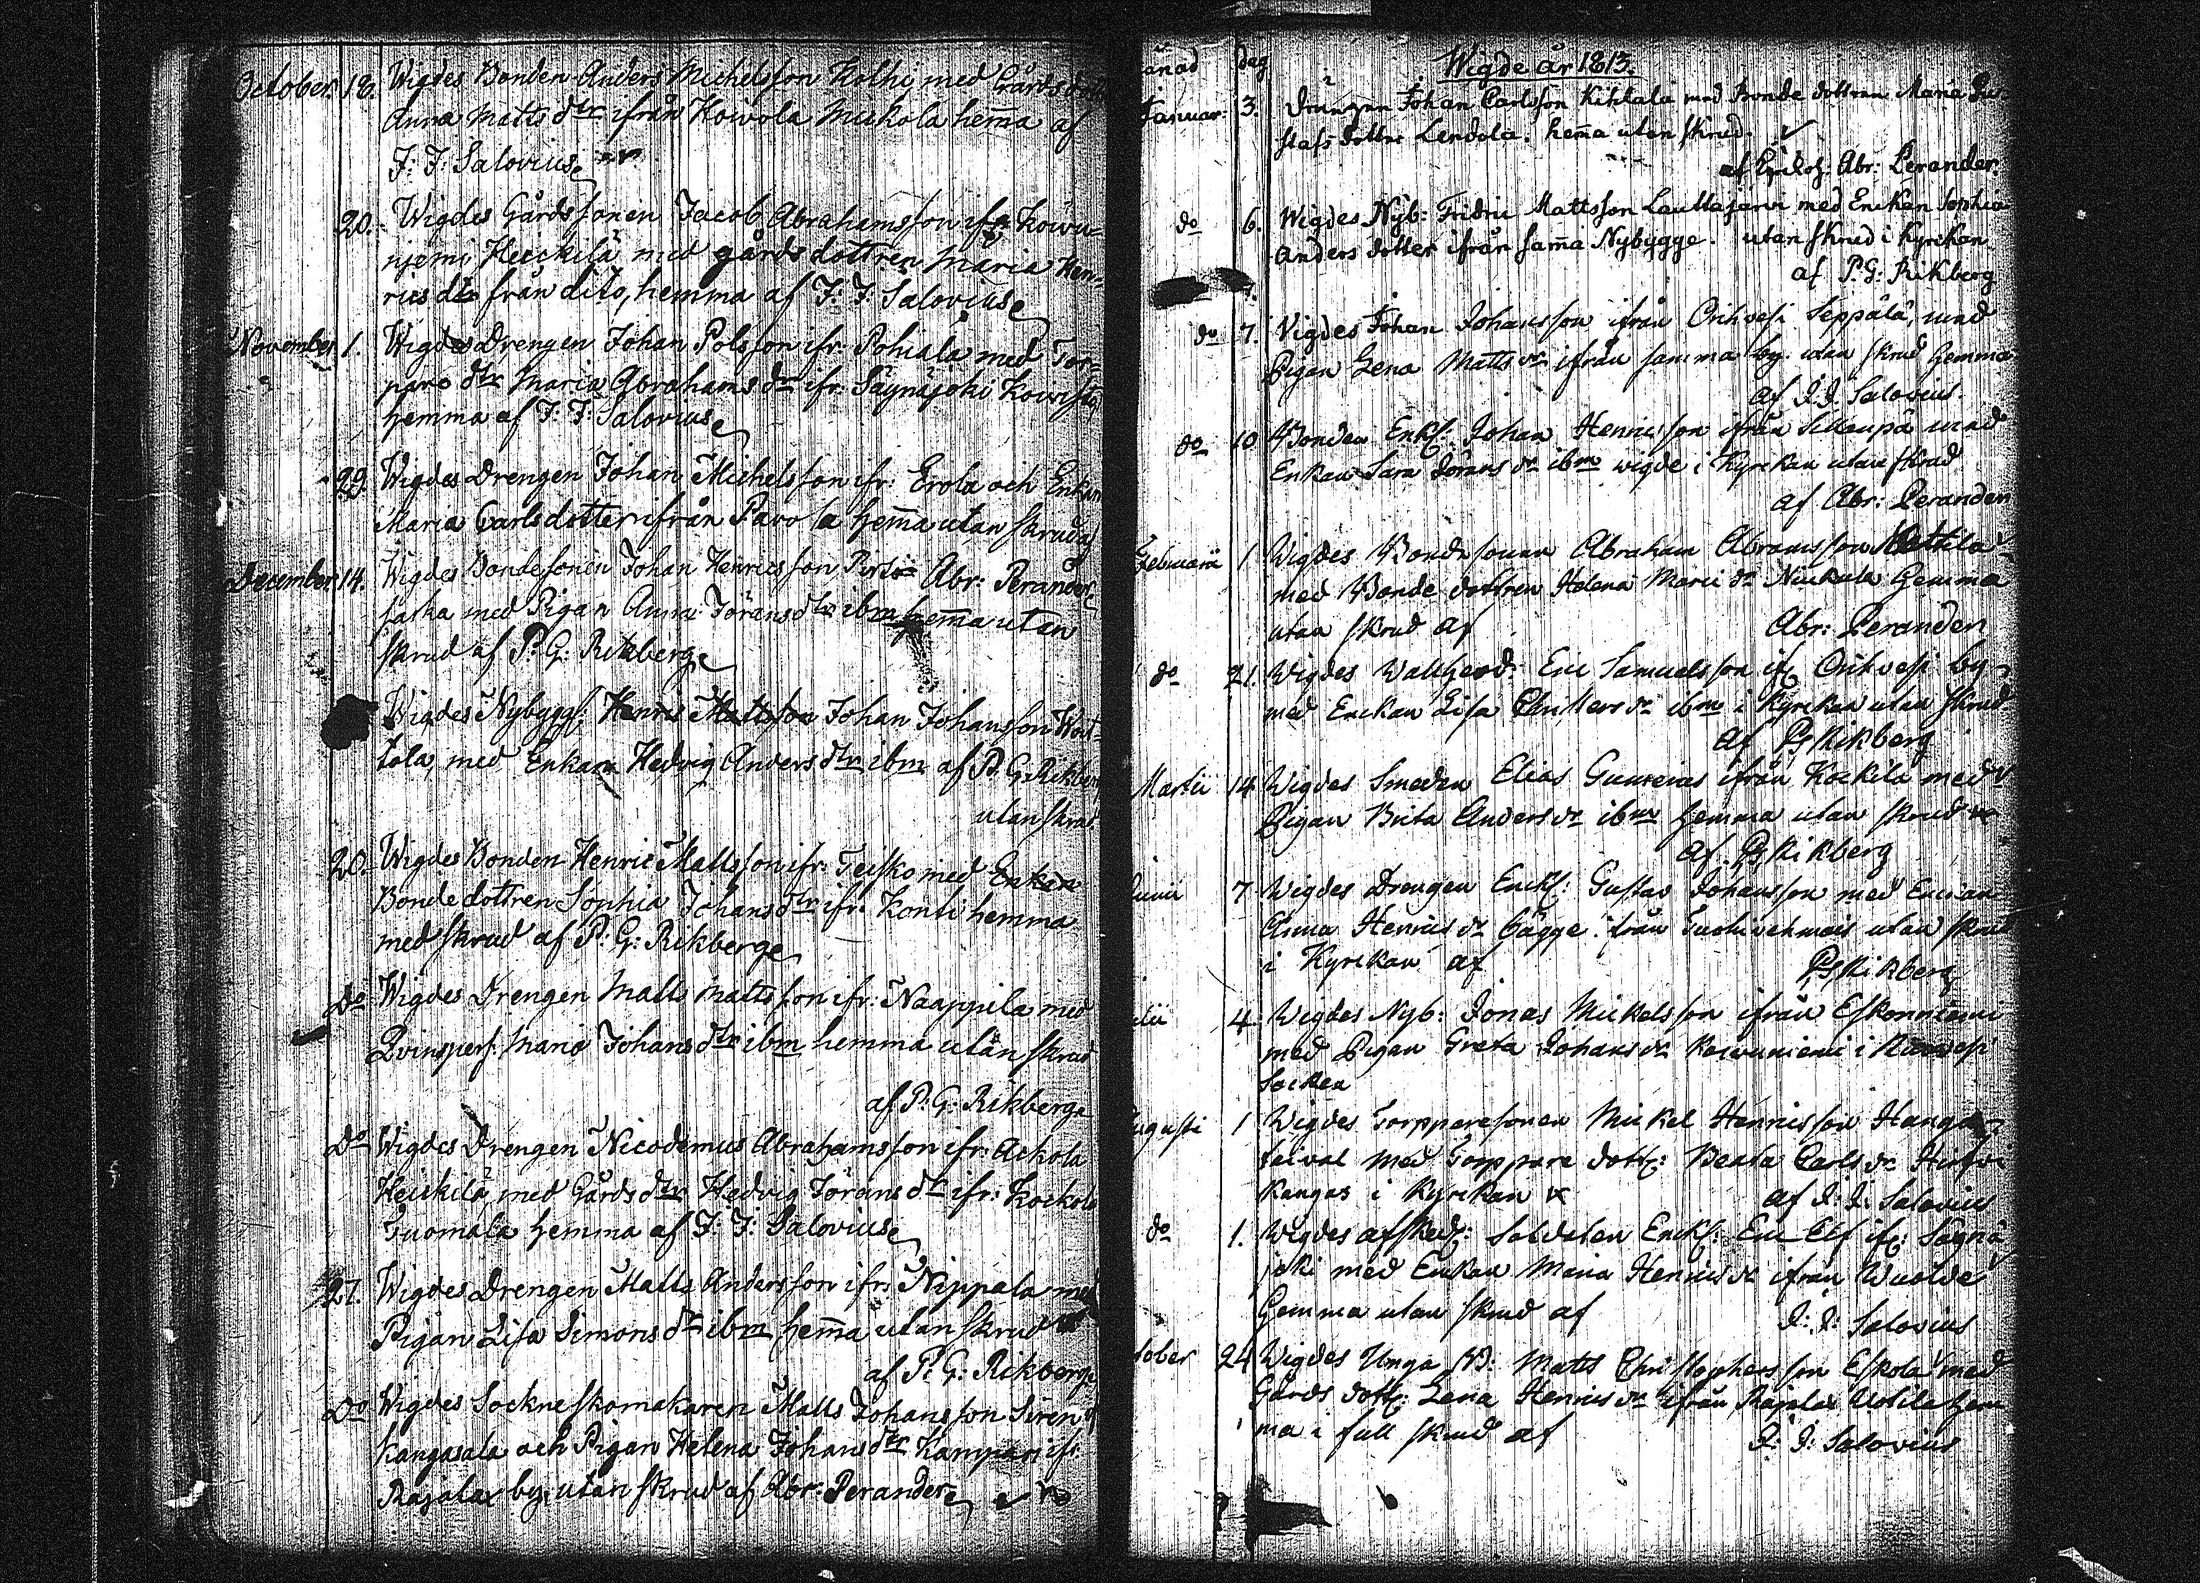 October 18. Wigdes Bonden Anders Michelsson Kolhi med Gårds
Anna Matts dtr ifrån Koivola Mickola hem̄a af
J: J: Salovius
20. Wigdes Gårdssonen Jacob Abrahamsson ifr Koivu-
njemi Heickilä med gårds dottren Maria Hen-
rics dtr från dito, hemma af J: J: Salovius
November 1. Wigdes Drengen Johan Polsson ifr: Pohiala med Tor-
pare dtr Maria Abrahams dtr ifr: Sägnäjoki Koivisto
hemma af J: J: Salovius
29. Wigdes Drengen Johan Michelsson ifr: Erola och Enkan
Maria Carlsdotter ifrån Pavola hem̄a utan skrud af
Abr: Perander
December 14. Wigdes Bondesonen Johan Henricsson
med Pigan Anna Jörans dtr ibm hem̄a utan
skrud af P: G: Rikberg
Wigdes Nybygg: Henric Mattsson Johan Johansson
tola, med Enkan Hedvig Anders dtr ibm af P: G: Rikberg
utan skrud
20. Wigdes Bonden Henric Mattsson ifr: Teisko med Enkan
Bonde dottren Sophia Johans dtr ifr: Konti hemma
med skrud af P: G: Rikberg
Do Wigdes Drengen Matts Mattsson ifr: Naappila med
Qvinspers: Maria Johans dtr ibm hemma utan skrud
af P: G: Rikberg
Do Wigdes Drengen Nicodemus Abrahamsson ifr: Ackola
Heickilä, med Gårds dtr Hedvig Jörans dtr ifr: Kockola
Tuomala hemma af J: J: Salovius
27. Wigdes Drengen Matts Andersson ifr: Nippala med
Pigan Lisa Simons dtr ibm hem̄a utan skrud
af P: G: Rikberg
Do Wigdes Sockneskomakaren Matts Johansson Siren
Kangasala och Pigan Helena Johans dtr Kamppari ifr:
Rajalax by, utan skrud af Abr: Perander
ånad dag Wigde år 1813.
Januar: 3. Drängen Johan Carlsson Kihlala med Bonde dottren Maria Gu-
stafs dotter Lendola. hem̄a utan skrud.
af Abr: Perander.
do 6. Wigdes Nyb: Fridric Mattsson Lauttajärvi med Enckan Sophia
Anders dotter ifrån sam̄a Nybygge. utan skrud i Kyrckan
af P: G: Rikberg
do 7. Vigdes Johan Johansson ifrån Orihvesi Seppälä, med
Pigan Lena Matts dr ifrån samma by. utan skrud hemma
af J. J. Salovius.
do 10 Bonden Enkl: Johan Henricsson ifrån med
Enkan Sara Jörans dr ibm wigde i Kyrckan utan skrud
af Abr: Perander
Februarii 1 Wigdes Bondesonen Abraham Abramsson Mattila
med Bonde dottren Helena Marci dr hemma
utan skrud af Abr: Perander
do 21. Wigdes Wallherd: Eric Samuelsson ifr Orihvesi by
med Enckan Lisa Christers dr ibm i Kyrckan utan skrud
af PG Rikberg
Martii 14 Wigdes Smeden Elias ifrån Kockila med
Pigan Brita Anders dr ibm hemma utan skrud
af PG Rikberg
Junii 7 Wigdes Drengen Enckl: Gustav Johansson med Enckan
Anna Henrics dr ifrån utan skrud
i Kyrckan af PG Rikberg
4 Wigdes Nyb: Jonas Mickelsson ifrån Eskonniemi
med Pigan Greta Johans dr Koivuniemi i Ruovesi
Socken
ugusti 1 Wigdes Torpparesonen Mickel Henricsson Hangas-
taival med Torppare dott: Beata Carls dr Hirsvi
kangas i Kyrckan af J: J: Salovius
do 1. Wigdes afsked: Soldaten Enckl: Eric Elf ifr: Sägnä
joki med Enckan Maria Henrics dr ifrån
hemma utan skrud af J: J: Salovius
tober 24 Wigdes Unga B: Matts Christophersson Eskola med
Gårds dott: Lena Henrics dr ifrån Rajalax Uotila hem
ma i full skrud af J: J: Salovius